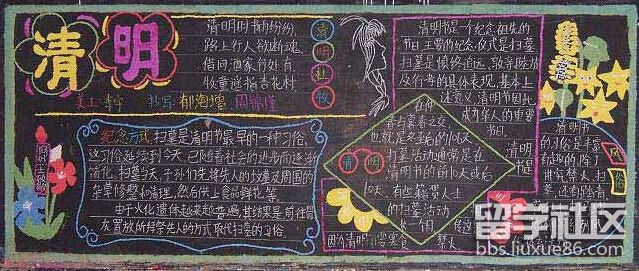 清明
清明时节雨纷纷,
路上行人欲断魂。
借问酒家何处有
牧童遥指杏花村。
清明杜牧
美工:李宁 抄写:郁海瑶
纪念方式 扫墓是清明节最早的一种习俗,
这习俗延续到今天,已随着社会的进步而逐渐
简化。扫墓当天,子孙们先将先人的坟墓及周围的
杂草修整和清理,然后供上食品鲜花等。
由于火化遗体越来越普遍,其结果是前往骨
灰置放所拜祭先人的方式取代扫墓的习俗。
清明节是一个纪念祖先的
节日,主要的纪念仪式是扫墓,
扫墓是慎终追远、敦亲睦族
及行孝的具体表现,基本上
述意义,清明节因此
成为华人的重要
节日。
清明
扫墓活动通常是在
清明节的前10天或后
10天。有些籍贯人士
的扫墓活动
清明
清明节
的习俗是丰富
有趣的,除了
讲究禁火、扫
墓,还有踏青
因为清明节要寒食
留学社区
bbs.liuxue86.com